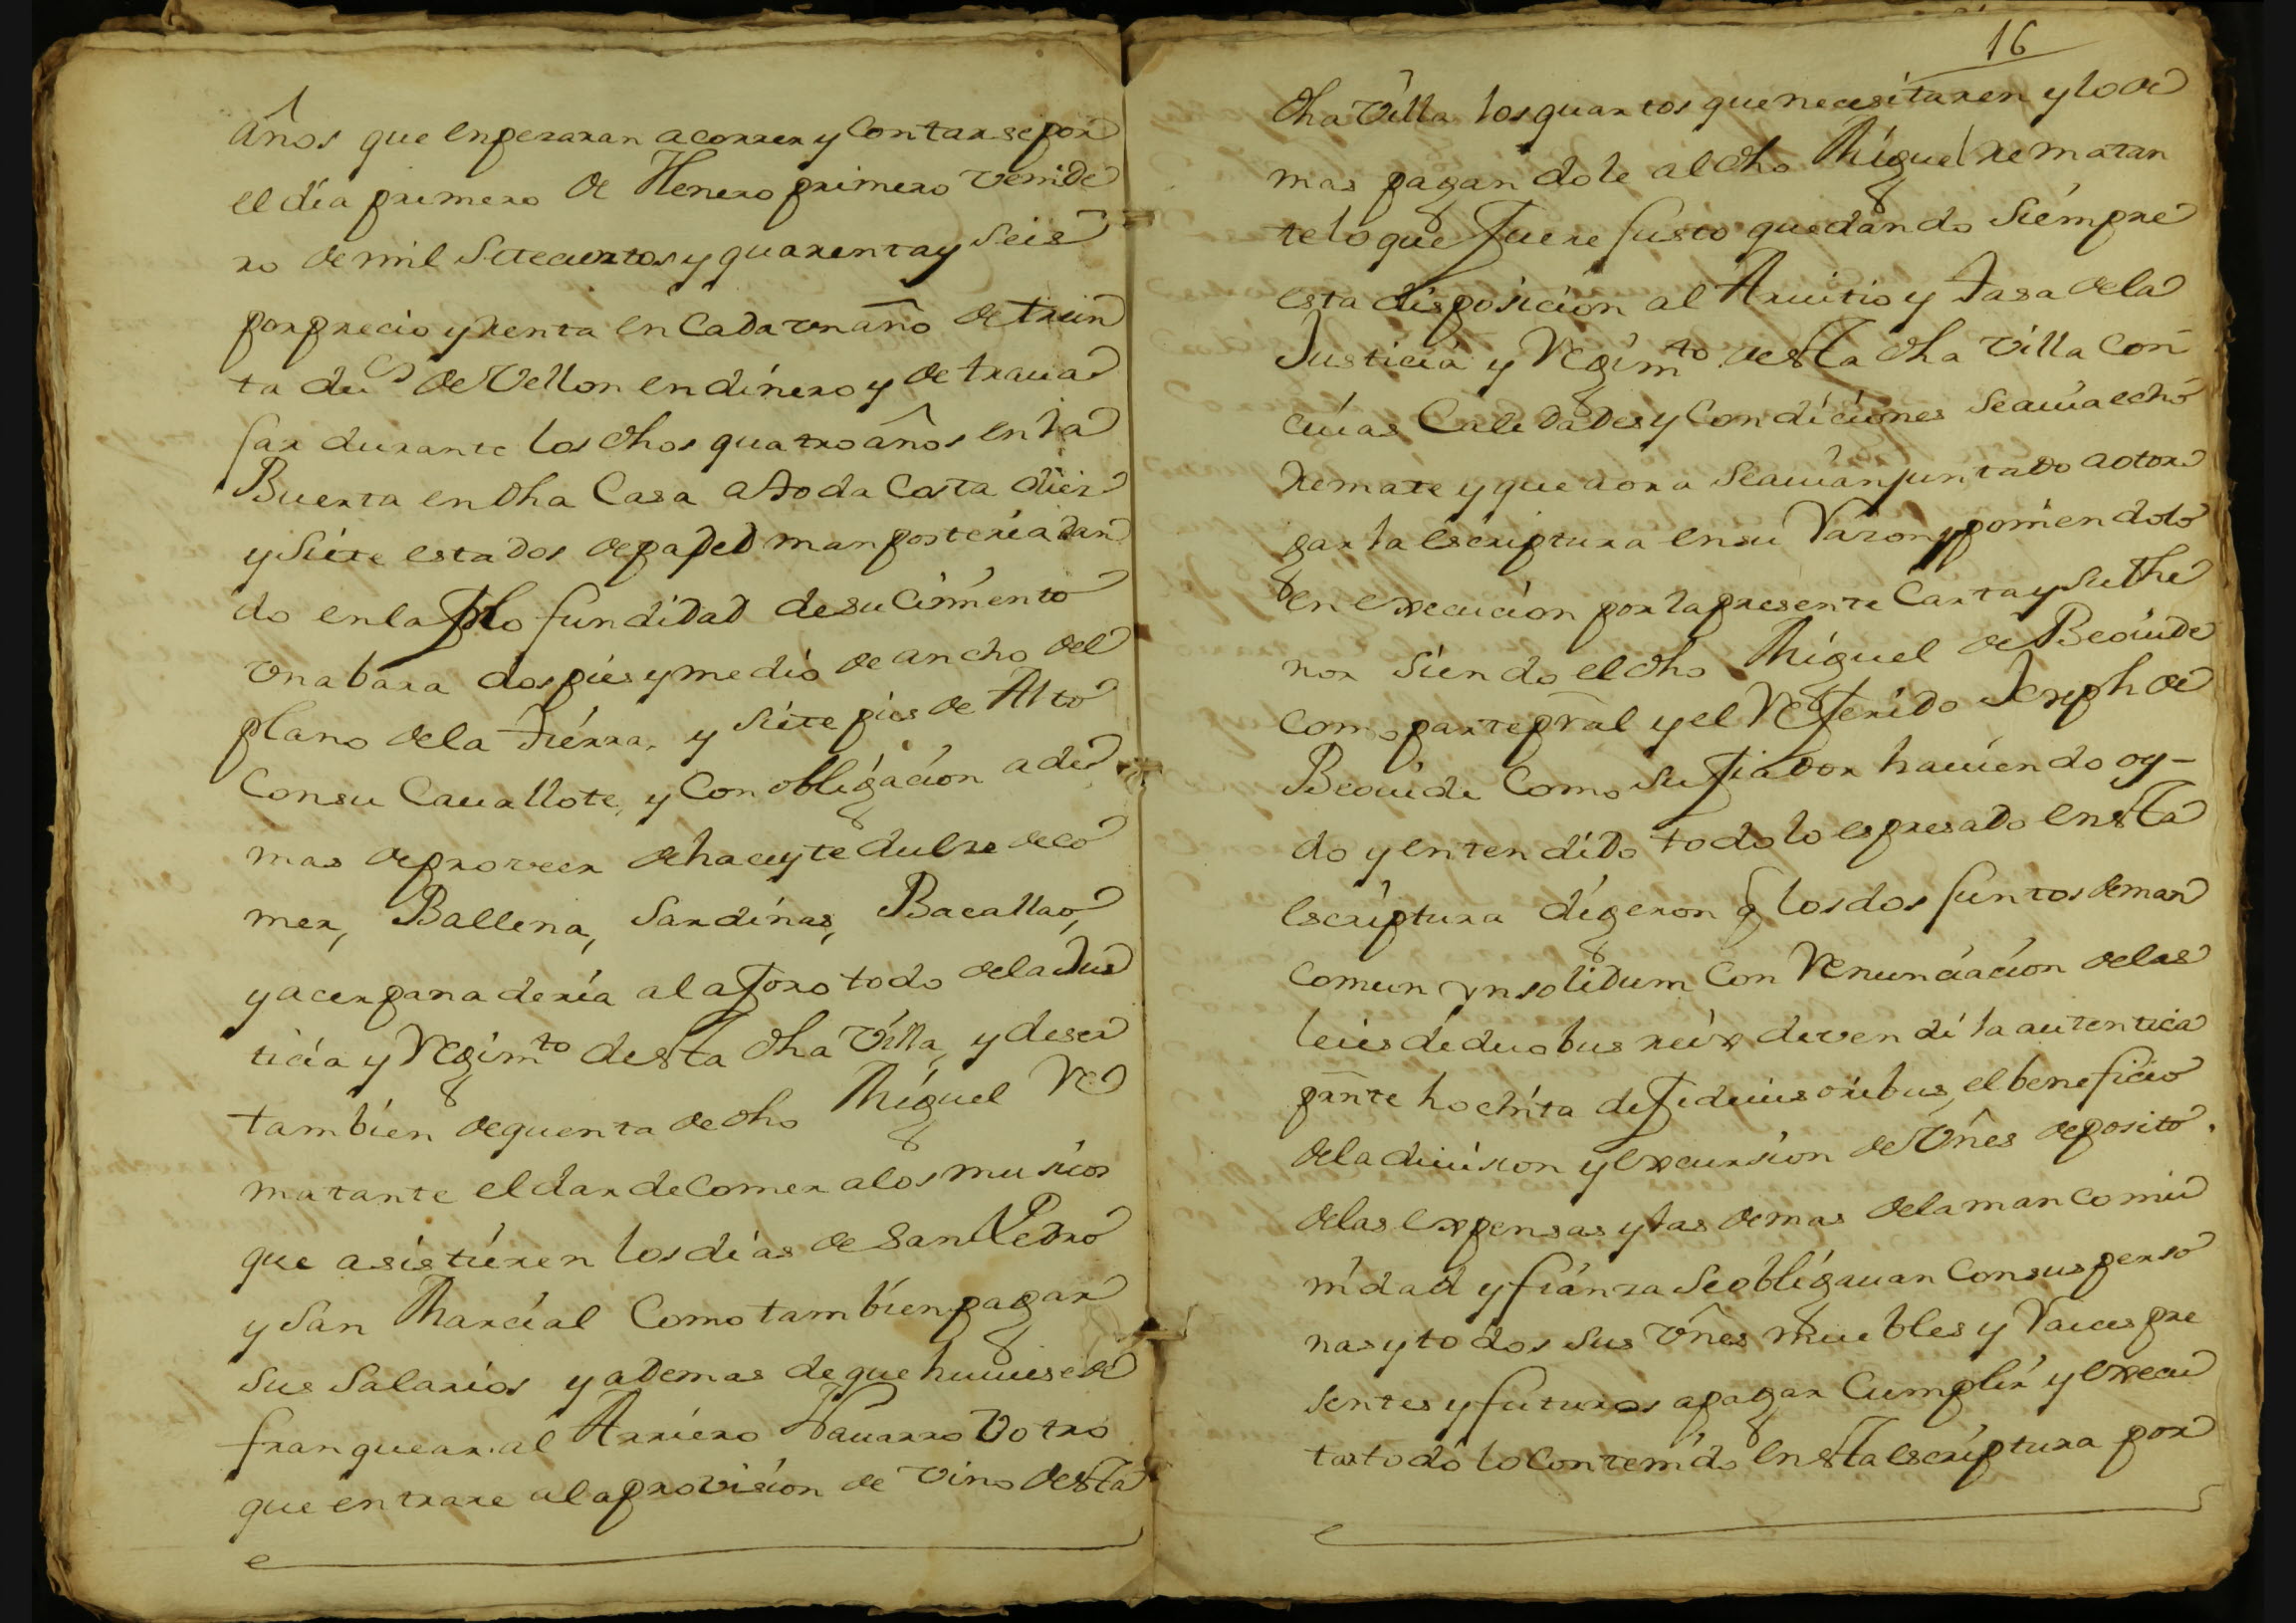 años que enpezaran a correr y Contarse por
el día primero de Henero primero venide
ro de mil Setecientos y quarenta y Seis
por precio y renta en Cada vn año de trein
ta du.s de Vellon en dinero y de traua
jar durante los dhos quatro años en la
Buerta en dha Casa a toda Costa diez
y Siete estados de pared manposteria dan
do en la profundidad de su Cimiento
vna bara dos pies y medio de ancho del
plano de la tierra, y Siete pies de Alto
Con su Cauallote, y Con obligacion a de
mas de proveer de haceyte dulze de co
mer, Ballena, Sardinas, Bacallao,
y acer panaderia al aforo todo de la Jus
ticia y Regim.to desta dha Villa, y de ser
tambien de quenta de dho Miguel Re
matante el dar de Comer a los musicos
que asistieren los dias de San Pedro
y San Marcial Como tambien pagar
sus Salarios y ademas de que huuiese de
franquear al Arriero Nauarro V otro
que entrare a la provision de vino desta
16
dha Villa los quartos que necesitaren y lo de
mas pagandole al dho Miguel rematan
te lo que fuere Justo quedando Siempre
esta disposicion al Aruitrio y Tasa de la
Justicia y Regim.to desta dha Villa Con
cuias Calidades y Condiciones Se auia echo
remate y que aora Se auian juntado a otor
gar la escriptura en su Razon y poniendolo
en execucion por la presente Carta y Su the
nor Siendo el dho Miguel de Beouide
Como parte prãl y el Referido Joseph de
Beouide Como Su fiador hauiendo oy-
do y entendido todo lo espresado en esta
escriptura digeron q los dos Juntos de man
comun ynsolidum Con Renunciacion de las
leies de duobus reix devendi la autentica
prñte hochita de fideiusoribus, el beneficio
de la diuision y excursion de Vnes deposito
de las expensas y las demas de la mancomu
nidad y fianza Se obligauan Con sus perso
nas y todos sus Vnes muebles y Raices pre
sentes y futuros a pagar Cumplir y execu
tar todo lo Contenido en esta escriptura por